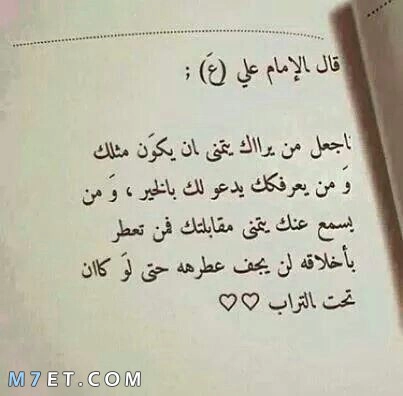 قال الإمام علي (عَ) ;
اجعل من يراك يتمنى ان يكوَن مثلك
وَ من يعرفكك يدعو لك بالخير ، وَ من
يسمع عنك يتمنى مقابلتك فمن تعطر
بأخلاقه لن يجف عطرهه حتى لوَ كاان
تحت التراب ♡♡
M7ET.COM